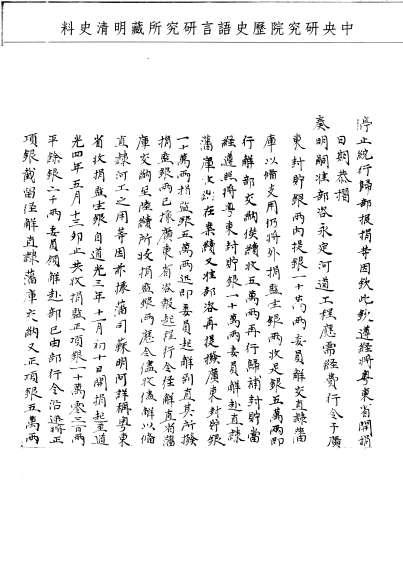 中央研究院歷史語言研究所藏明清史料
停止統行歸部報捐等因欽此欽遵經將粵東省開捐
日期恭摺
奏明嗣准部咨永定河道工程應需經費行令于廣
東封貯銀兩內提銀一十萬兩委員解交直隸藩
庫以備支用仍將外捐監士銀兩收足銀五萬兩即
行解部交納俟續收五萬兩再行歸補封貯當
經遵照將粵東封貯銀一十萬兩委員解赴直隸
藩庫交納在案續又准部咨再提撥廣東封貯銀
一十萬兩捐監銀五萬兩迅即委員起解前直其所撥
捐監銀兩已據廣東省咨報起程行令徑解直省藩
庫交納至陸續所收捐監銀兩應令儘收儘解以備
直隸河工之用等因亦據藩司蘇明阿詳稱粵東
省收捐監生銀自道光三年十一月初十日開捐起至道
光四年五月十三卯止共收捐監正項銀一十萬零二百兩
平餘銀二千兩委員領解赴部已由部行令沿途將正
項銀截留徑解直隸藩庫交納又正項銀五萬兩